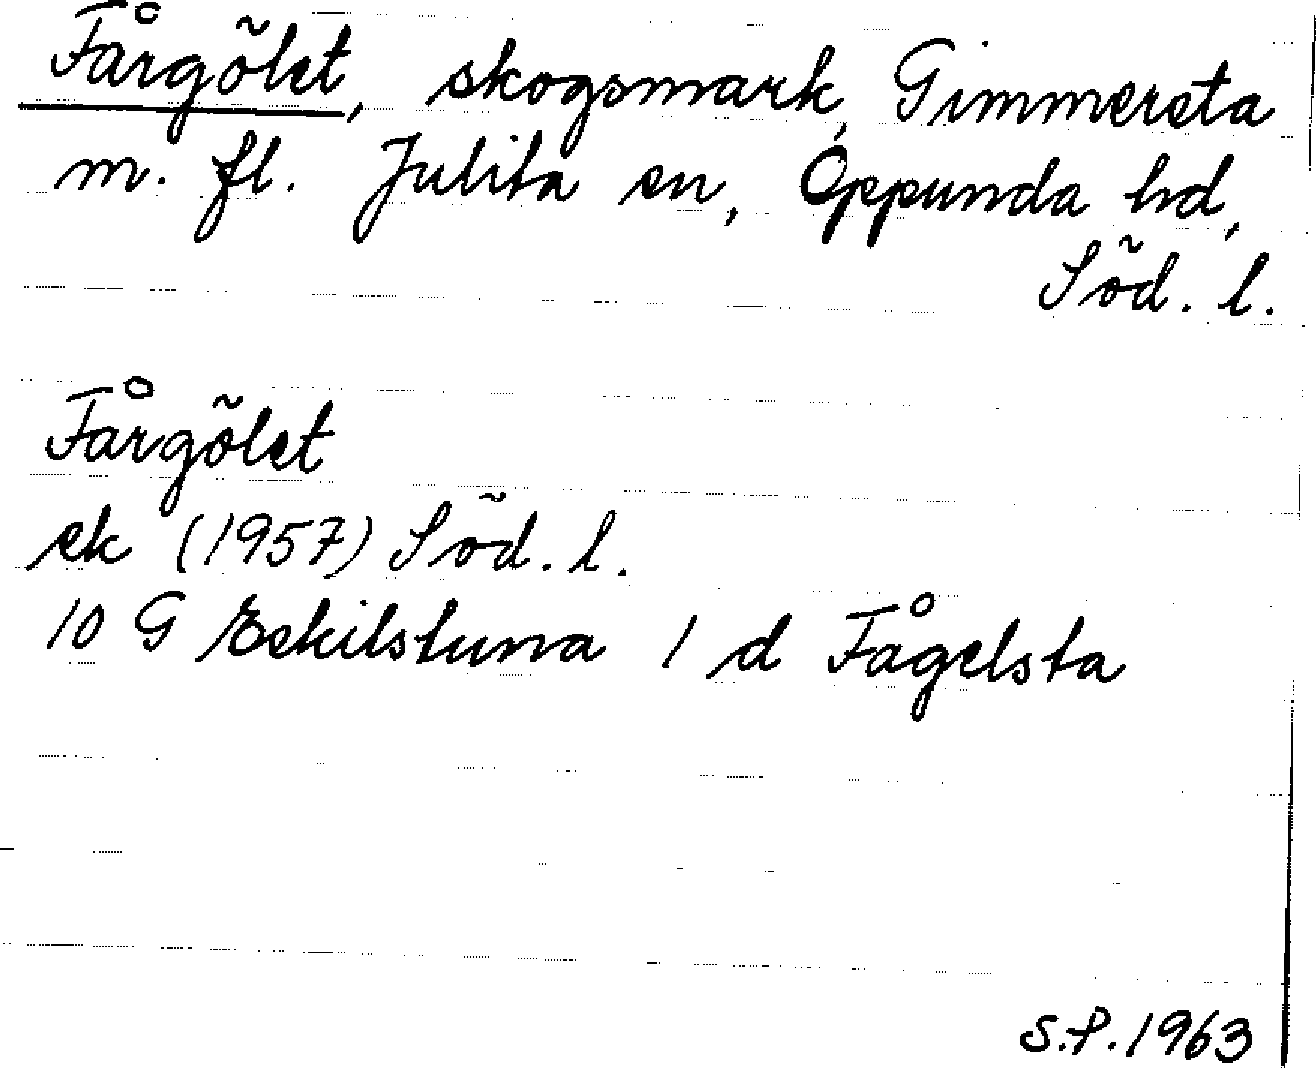 Fårgölet, skogsmark, Gimmersta
m. fl. Julita sn, Oppunda hd,
Söd. l.
Fårgölet
ek (1957) Söd. l.
10 G Eskilstuna 1 d Fågelsta
S.P. 1963